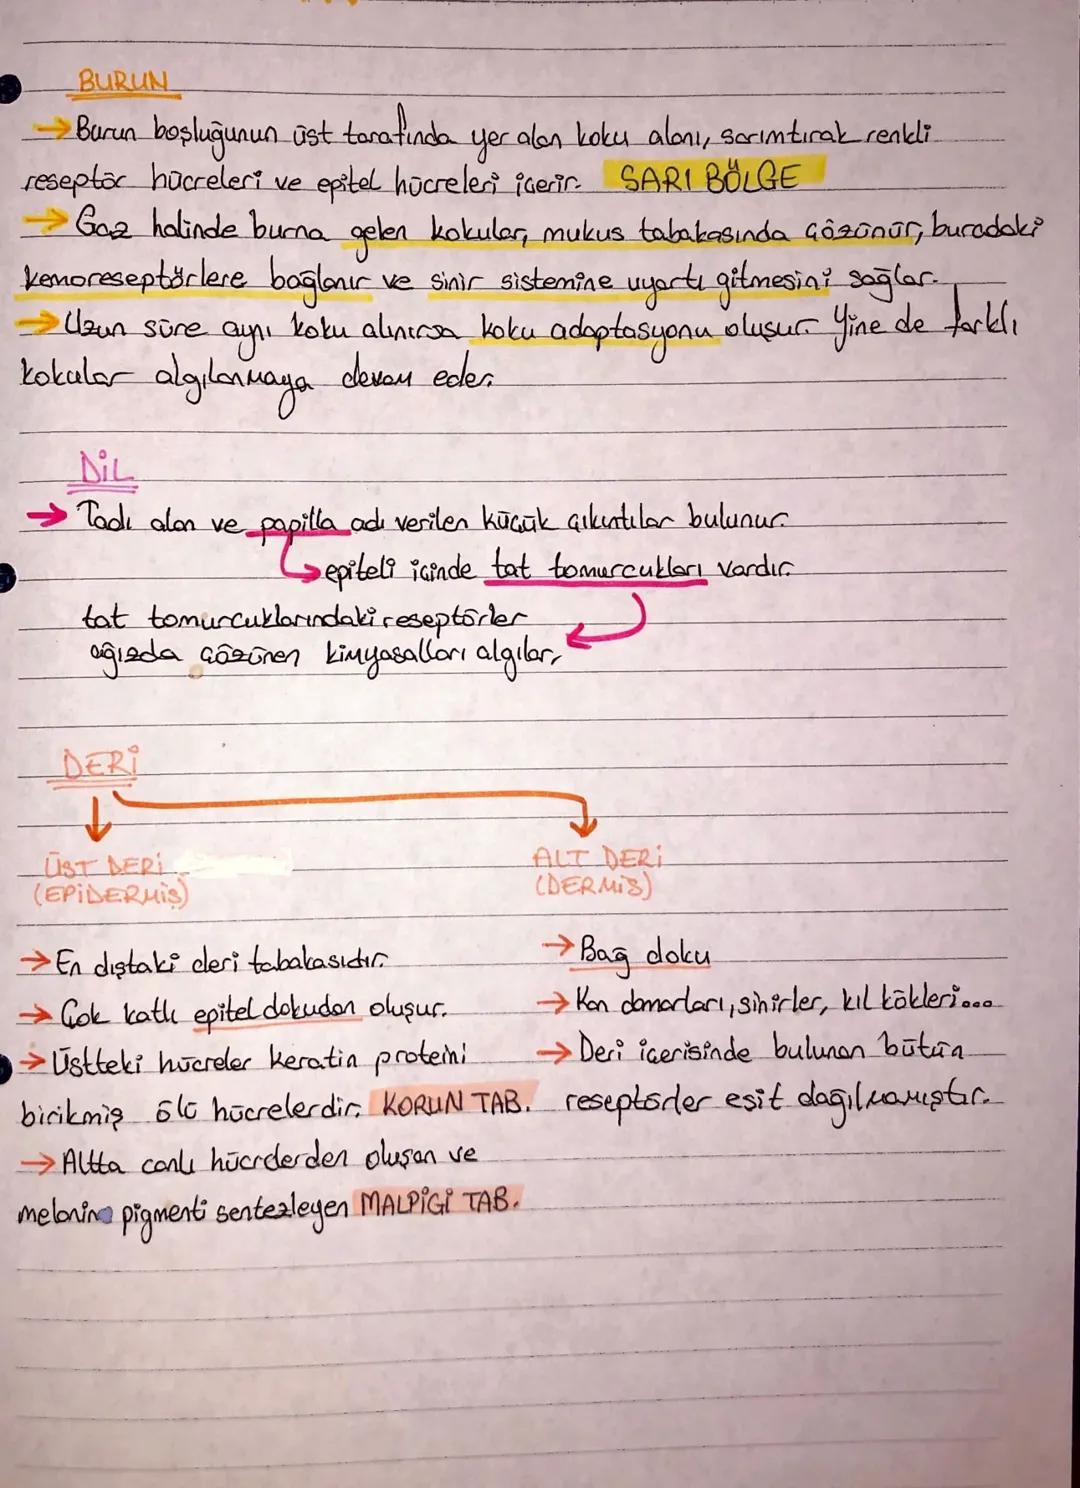 BURUN
→ Burun boşluğunun üst tarafında yer alan koku alanı, sarımtırak renkli
reseptör hücreleri ve epitel hücreleri içerir. SARI BÖLGE
→ Gaz halinde burna gelen kokular, mukus tabakasında çözünür, buradaki
kemoreseptörlere bağlanır ve sinir sistemine uyartı gitmesini sağlar.
→ Uzun süre aynı koku alınırsa koku adaptasyonu oluşur. Yine de farklı
kokular algılanmaya devam eder.
DİL
→ Tadı alan ve papilla adı verilen küçük çıkıntılar bulunur.
epiteli içinde tat tomurcukları vardır.
tat tomurcuklarındaki reseptörler
ağızda çözünen kimyasalları algılar.
DERİ
ÜST DERİ
(EPİDERMİS)
→ En dıştaki deri tabakasıdır.
→ Çok katlı epitel dokudan oluşur.
→ Üstteki hücreler keratin proteini
birikmiş ölü hücrelerdir. KORUN TAB.
→ Altta canlı hücrelerden oluşan ve
melanin pigmenti sentezleyen MALPİGİ TAB.
ALT DERİ
(DERMİS)
→ Bağ doku
→ Kan damarları, sinirler, kıl kökleri...
→ Deri içerisinde bulunan bütün
reseptörler eşit dağılmamıştır.